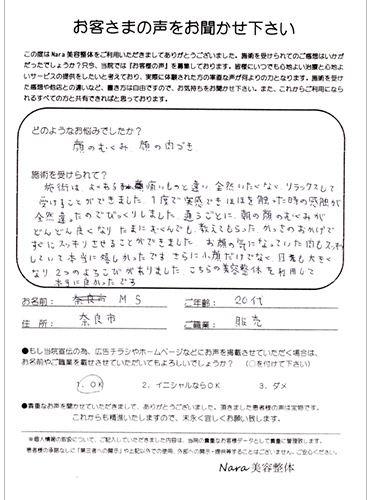 お客さまの声をお聞かせ下さい
この度はNara美容整体をご利用いただきましてありがとうございました。施術を受けられてのご感想はいかが
だったでしょうか？只今、当院では『お客様の声』を募集しております。皆様にいつでも心地よい治療と心地よ
いサービスの提供をしたいと考えており、実際に体験された方の率直な声が何よりの力となります。施術を受け
た感想や他店との違いなど、書き方は自由ですので、お気持ちをお聞かせ下さい。また、これからご利用になら
れるすべての方と共有できればと思っております。
どのようなお悩みでしたか？
顔のむくみ 顔の肉づき
施術を受けられて？
施術は よくある 痛いものと違い 全然いたくなく、リラックスして
受けることができました。1度で実感でき ほほを触った時の感触が
全然違ったのでびっくりしました。通うごとに、朝の顔のむくみが
どんどん良くなり たまにむくんでも、教えてもらった かっさのおかげで
すぐにスッキリさせることができました。お顔の気になっていた肉もスッキリ
していて本当に嬉しかったです さらに小顔だけでなく、目鼻も大きく
なり 2つのよろこびがありました。こちらの美容整体を利用して
本当に良かったです
お名前： MS ご年齢： 20代
住 所： 奈良市 ご職業： 販売
●もし当院宣伝の為、広告チラシやホームページなどにお声を掲載させていただく場合は、
お名前やご職業を載せさせていただいてもよろしいでしょうか？ （○を付けて下さい）
1．OK 2．イニシャルならOK 3．ダメ
●貴重なお声を聞かせていただきまして、ありがとうございました。頂きました患者様の声は宝物です。
これからも精進いたしますので、末永く宜しくお願い致します。
※個人情報の取扱について、ご記入していただきました内容は、当院の貴重なお客様データとして厳重に管理致します。
患者様の承諾なしに「第三者への開示」や上記以外での使用、外部への開示・提供等することはございません。ご安心ください。
Nara 美容整体